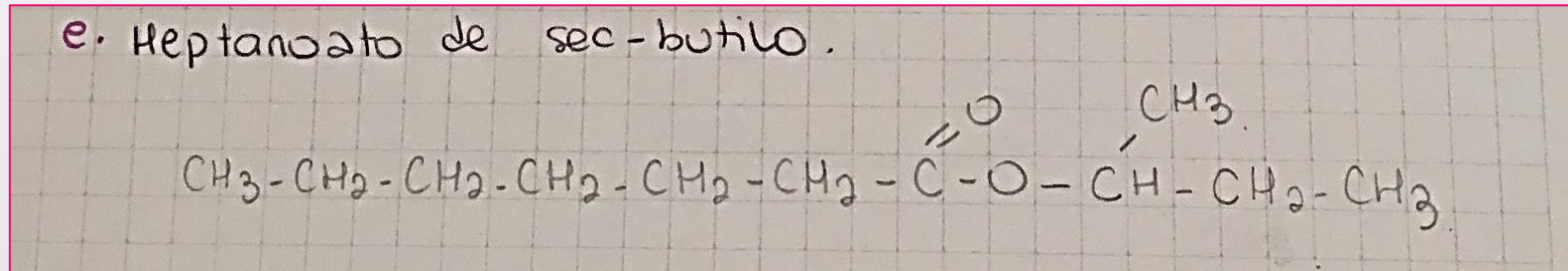 e. Heptanoato de sec-butilo.
O CH3.
CH3-CH2-CH2-CH2-CH2-CH2-C-O-CH-CH2-CH3